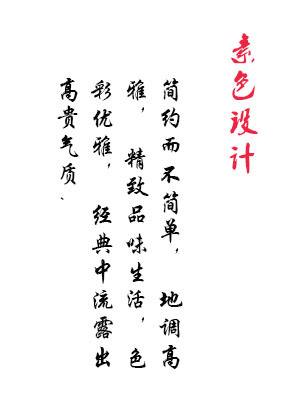 素色设计
简约而不简单， 地调高
雅， 精致品味生活，色
彩优雅， 经典中流露出
高贵气质、